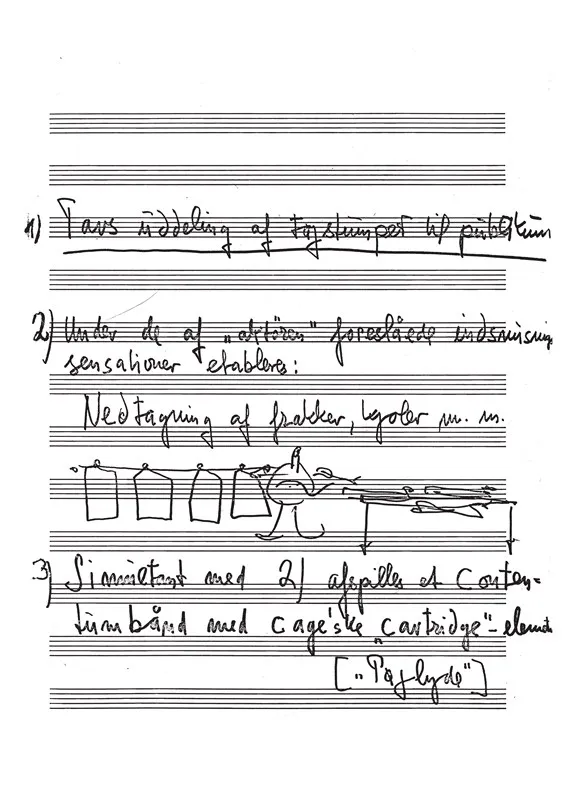 1) Tavs uddeling af tøjstumper til publikum
2) Under de af „aktören" foreslåede
sensationer etableres:
Nedtagning af frakker, kjoler m. m.
3) Simultant med 2) afspilles et Conten=
tumbånd med Cage'ske „Cartridge"-
[„Tøjlyde"]